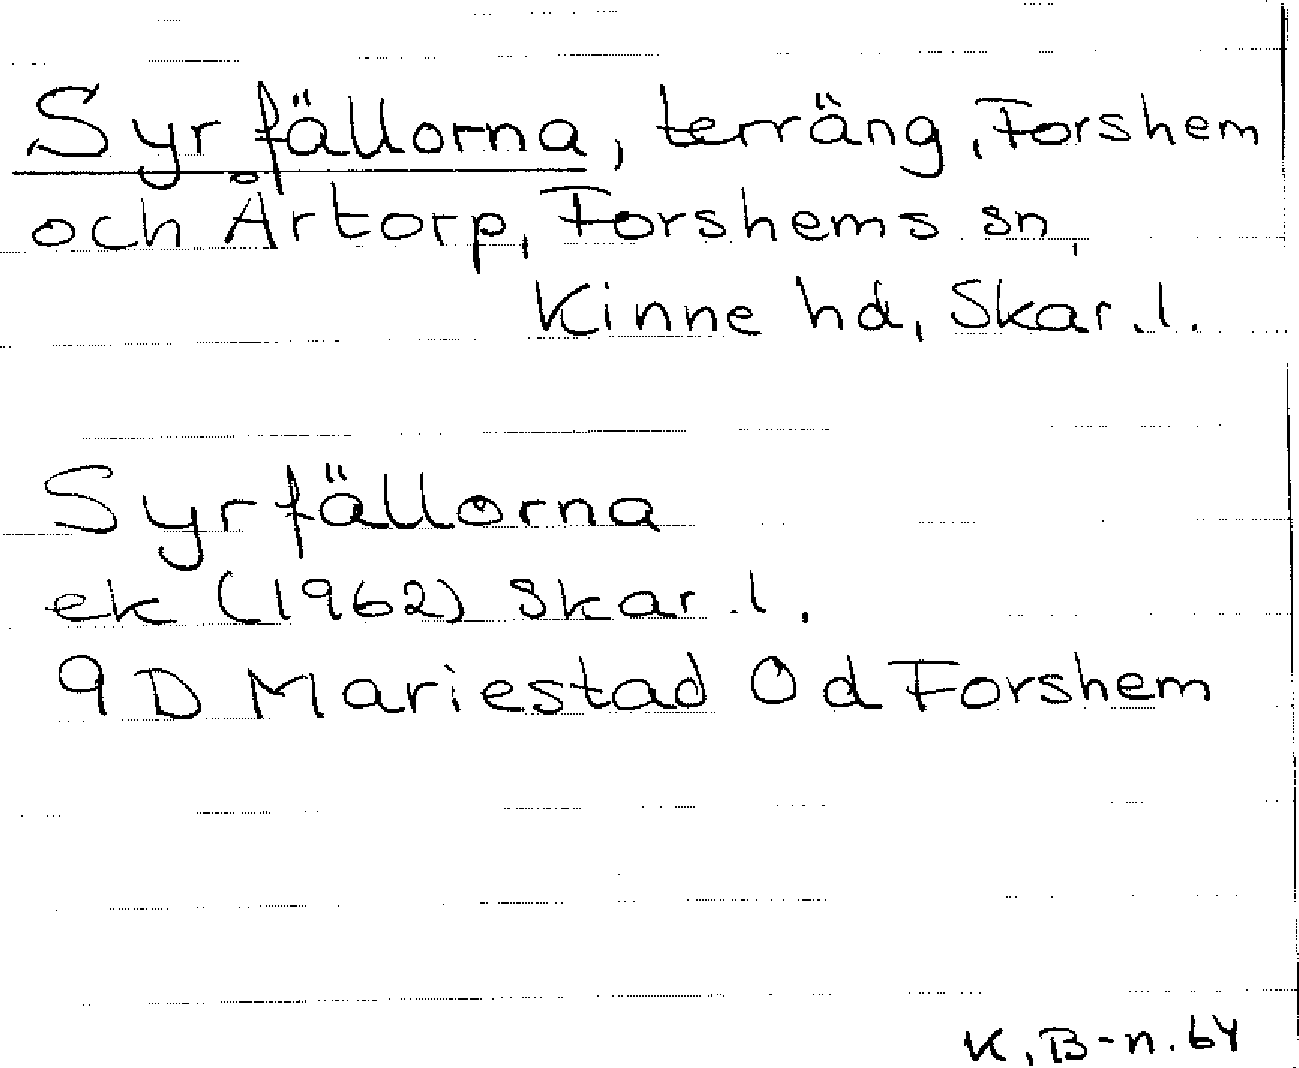 Syrfällorna, terräng, Forshem
och Årtorp, Forshems sn,
Kinne hd, Skar. l.
Syrfällorna
ek (1962) Skar. l.
9D Mariestad 0d Forshem
K. B-n. 64